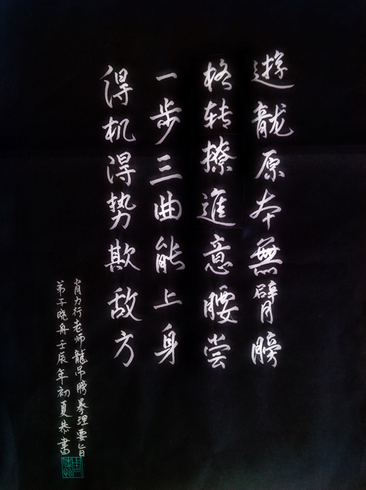 遊龍原本無臂膀
格转撩進意腰尝
一步三曲能上身
得机得势欺敌方
肖力行老师龍吊膀拳理要旨
弟子晓舟壬辰年初夏恭書